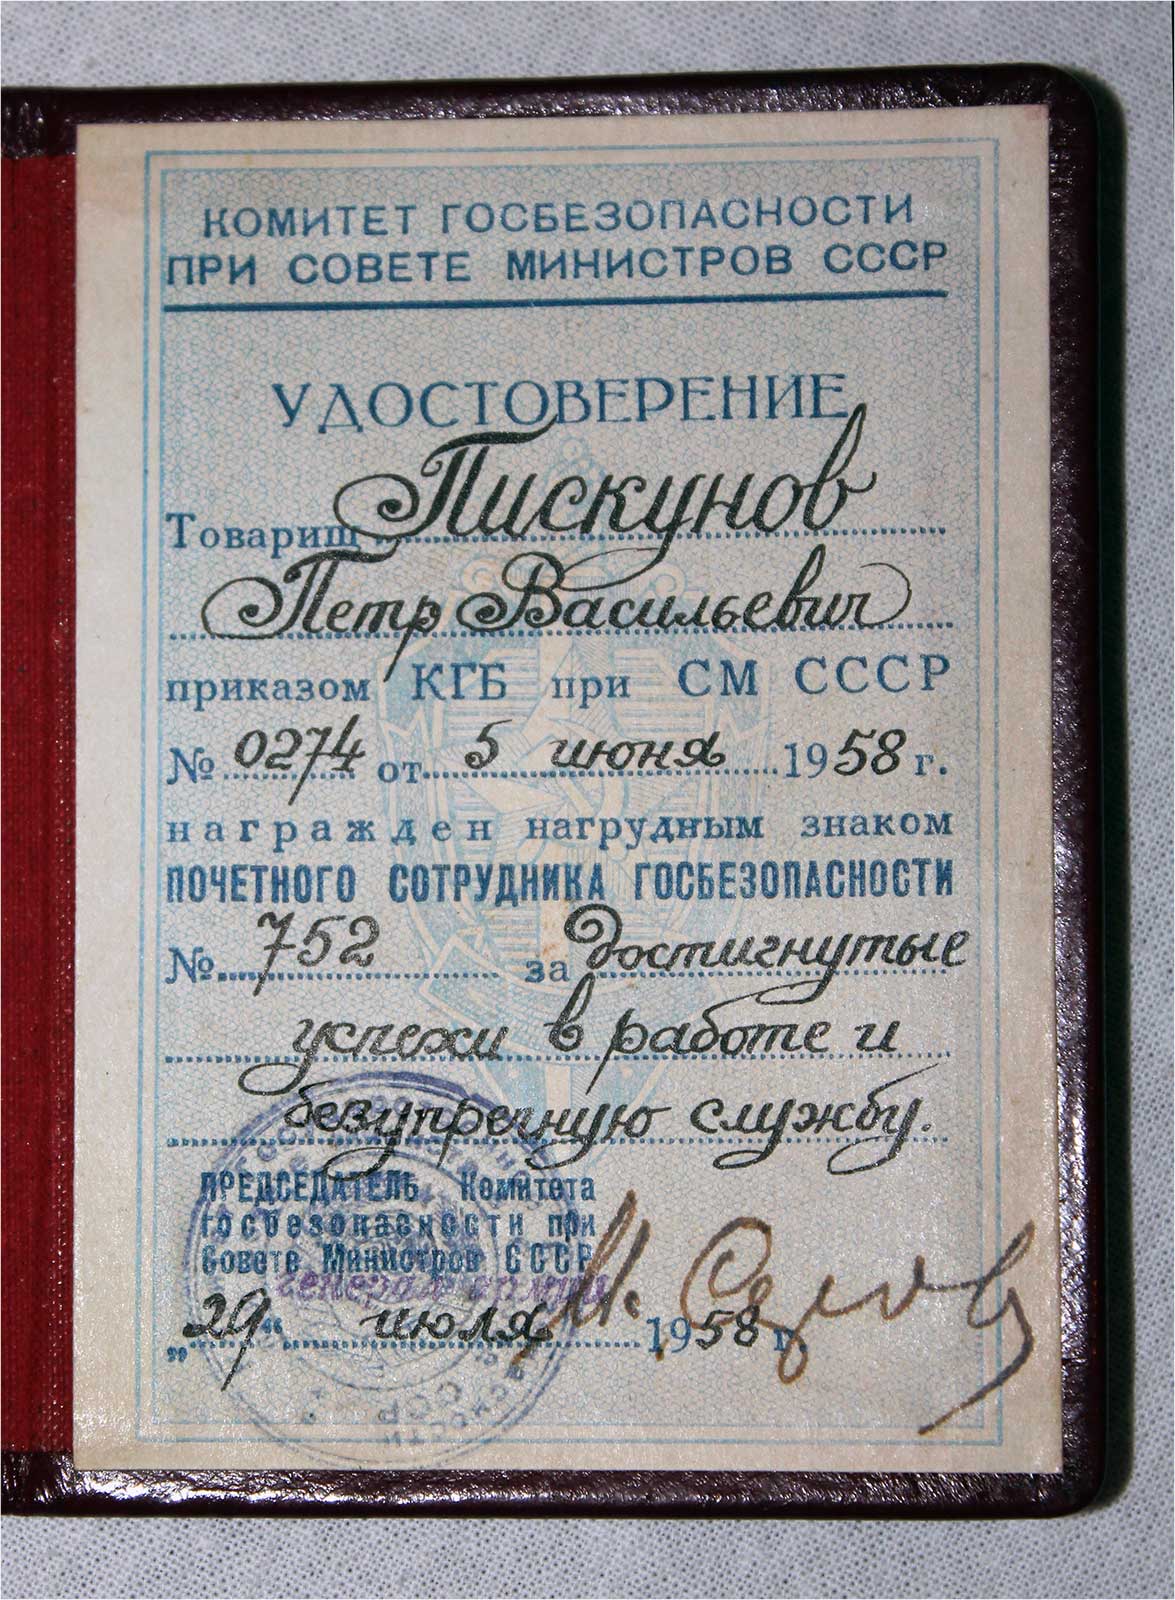 КОМИТЕТ ГОСБЕЗОПАСНОСТИ
ПРИ СОВЕТЕ МИНИСТРОВ СССР
УДОСТОВЕРЕНИЕ
Товарищ Пискунов
Петр Васильевич
приказом КГБ при СМ СССР
№ 0274 от 5 июня 1958 г.
награжден нагрудным знаком
ПОЧЕТНОГО СОТРУДНИКА ГОСБЕЗОПАСНОСТИ
№ 752 за достигнутые
успехи в работе и
безупречную службу.
ПРЕДСЕДАТЕЛЬ Комитета
госбезопасности при
Совете Министров СССР
генерал армии
„29“ июля 1958 г.